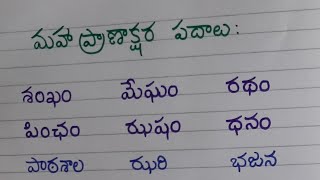 మహా ప్రాణాక్షర పదాలు:
శంఖం మేఘం రథం
పింఛం ఝషం ధనం
పాఠశాల ఝరి భజన